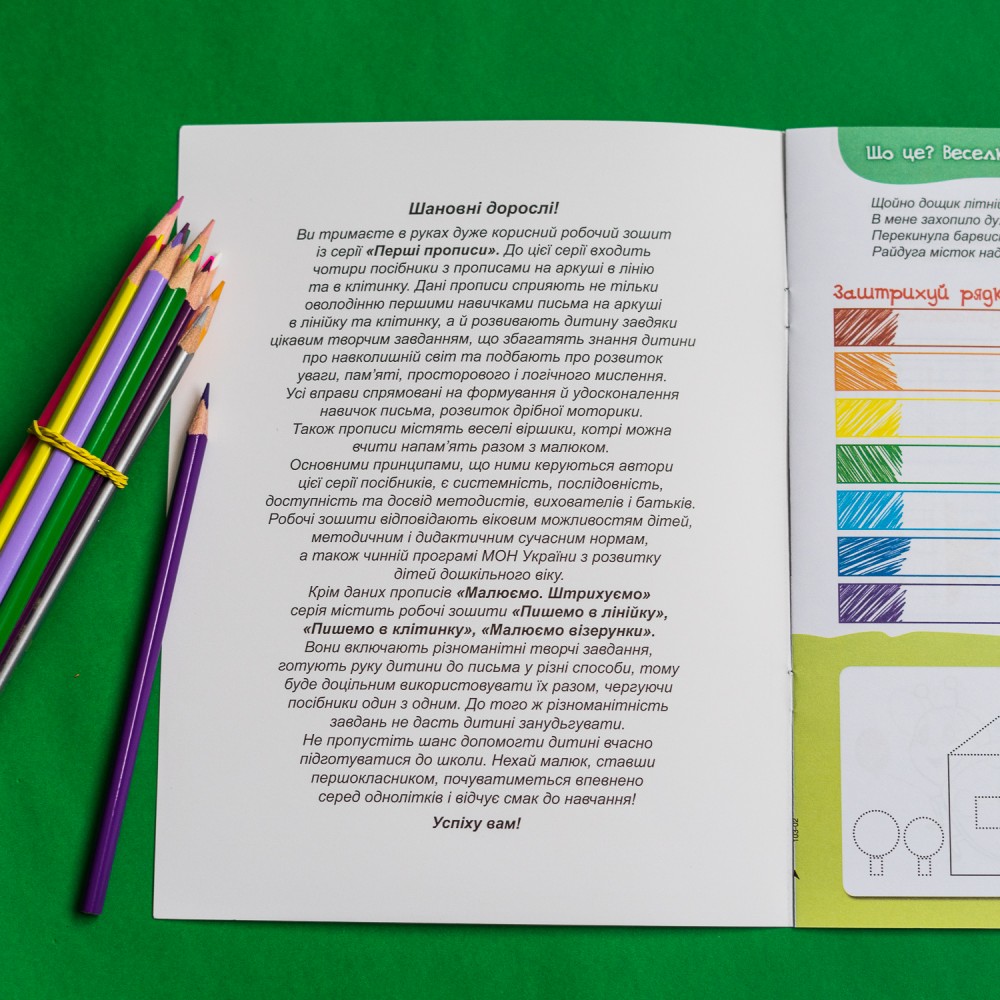 Шановні дорослі!
Ви тримаєте в руках дуже корисний робочий зошит
із серії «Перші прописи». До цієї серії входить
чотири посібники з прописами на аркуші в лінію
та в клітинку. Дані прописи сприяють не тільки
оволодінню першими навичками письма на аркуші
в лінійку та клітинку, а й розвивають дитину завдяки
цікавим творчим завданням, що збагатять знання дитини
про навколишній світ та подбають про розвиток
уваги, пам'яті, просторового і логічного мислення.
Усі вправи спрямовані на формування й удосконалення
навичок письма, розвиток дрібної моторики.
Також прописи містять веселі віршики, котрі можна
вчити напам'ять разом з малюком.
Основними принципами, що ними керуються автори
цієї серії посібників, є системність, послідовність,
доступність та досвід методистів, вихователів і батьків.
Робочі зошити відповідають віковим можливостям дітей,
методичним і дидактичним сучасним нормам,
а також чинній програмі МОН України з розвитку
дітей дошкільного віку.
Крім даних прописів «Малюємо. Штрихуємо»
серія містить робочі зошити «Пишемо в лінійку»,
«Пишемо в клітинку», «Малюємо візерунки».
Вони включають різноманітні творчі завдання,
готують руку дитини до письма у різні способи, тому
буде доцільним використовувати їх разом, чергуючи
посібники один з одним. До того ж різноманітність
завдань не дасть дитині занудьгувати.
Не пропустіть шанс допомогти дитині вчасно
підготуватися до школи. Нехай малюк, ставши
першокласником, почуватиметься впевнено
серед однолітків і відчує смак до навчання!
Успіху вам!
Що це? Весел
Щойно дощик літній
В мене захопило ду
Перекинула барвис
Райдуга місток над
Заштрихуй рядк
103-02